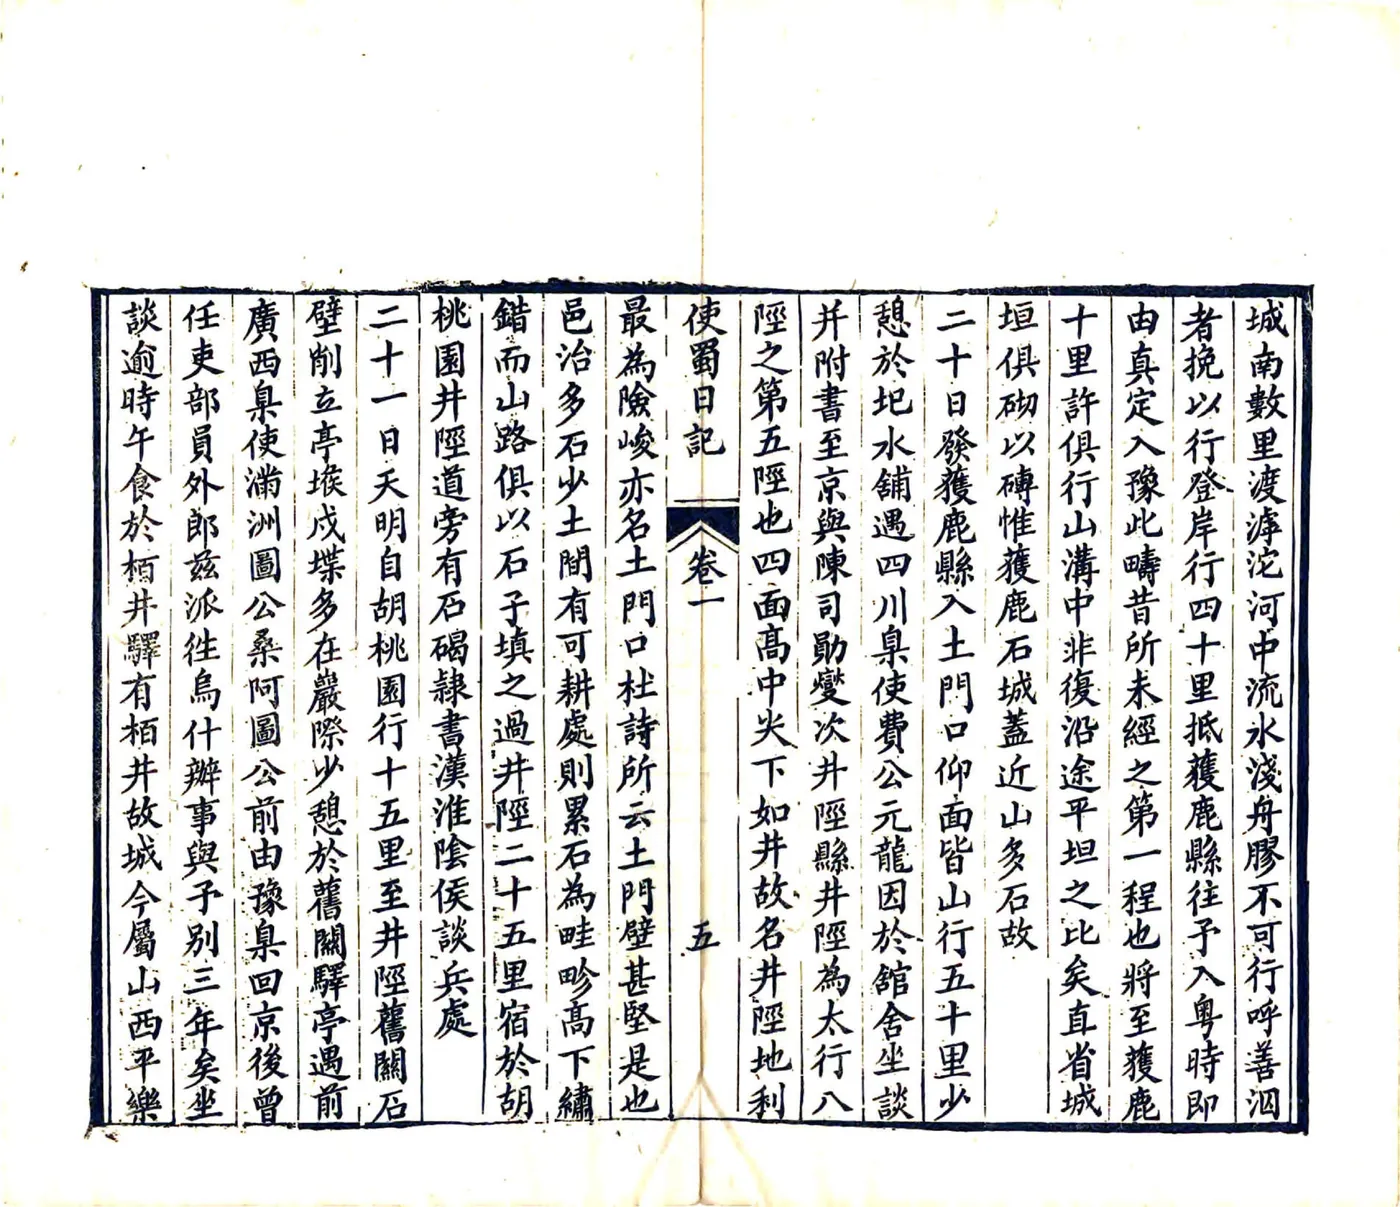 城南數里渡滹沱河中流水淺舟膠不可行呼善泅
者挽以行登岸行四十里抵獲鹿縣往予入粤時即
由真定入豫此疇昔所未經之第一程也將至獲鹿
十里許俱行山溝中非復沿途平坦之比矣直省城
垣俱砌以磚惟獲鹿石城蓋近山多石故
二十日發獲鹿縣入土門口仰面皆山行五十里少
憩於圯水舖遇四川臬使費公元龍因於舘舍坐談
并附書至京與陳司勛燮次井陘縣井陘為太行八
陘之第五陘也四面髙中央下如井故名井陘地利
使蜀日記
卷一
五
最為險峻亦名土門口杜詩所云土門壁甚堅是也
邑治多石少土間有可耕處則累石為畦畛髙下繡
錯而山路俱以石子填之過井陘二十五里宿於胡
桃園井陘道旁有石碣隷書漢淮陰侯談兵處
二十一日天明自胡桃園行十五里至井陘舊關石
壁削立亭堠戍堞多在巖際少憩於舊關驛亭遇前
廣西臬使滿洲圖公桑阿圖公前由豫臬回京後曾
任吏部員外郎兹派徃烏什辦事與予别三年矣坐
談逾時午食於栢井驛有栢井故城今屬山西平樂